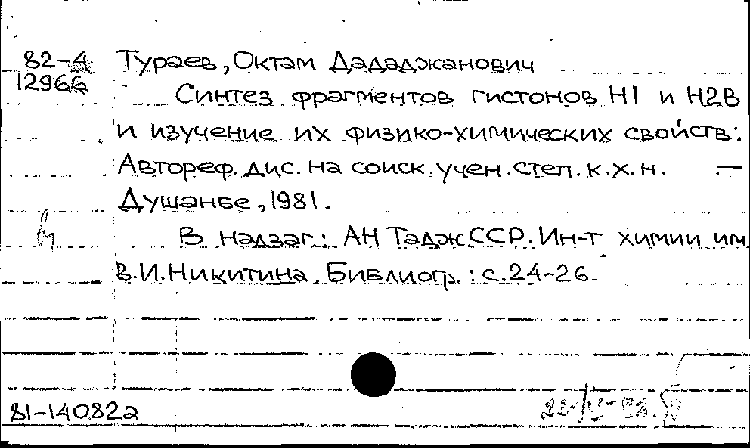 82-4 Тураев, Октам Дададжанович
12966
Синтез фрагментов гистонов Н1 и Н2В
и изучение их физико-химических свойств:
Автореф. дис. на соиск. учен. степ. к.х.н. —
Душанбе, 1981.
В надзаг.: АН ТаджССР. Ин-т химии им.
В.И. Никитина. Библиогр.: с. 24-26.
81-140822